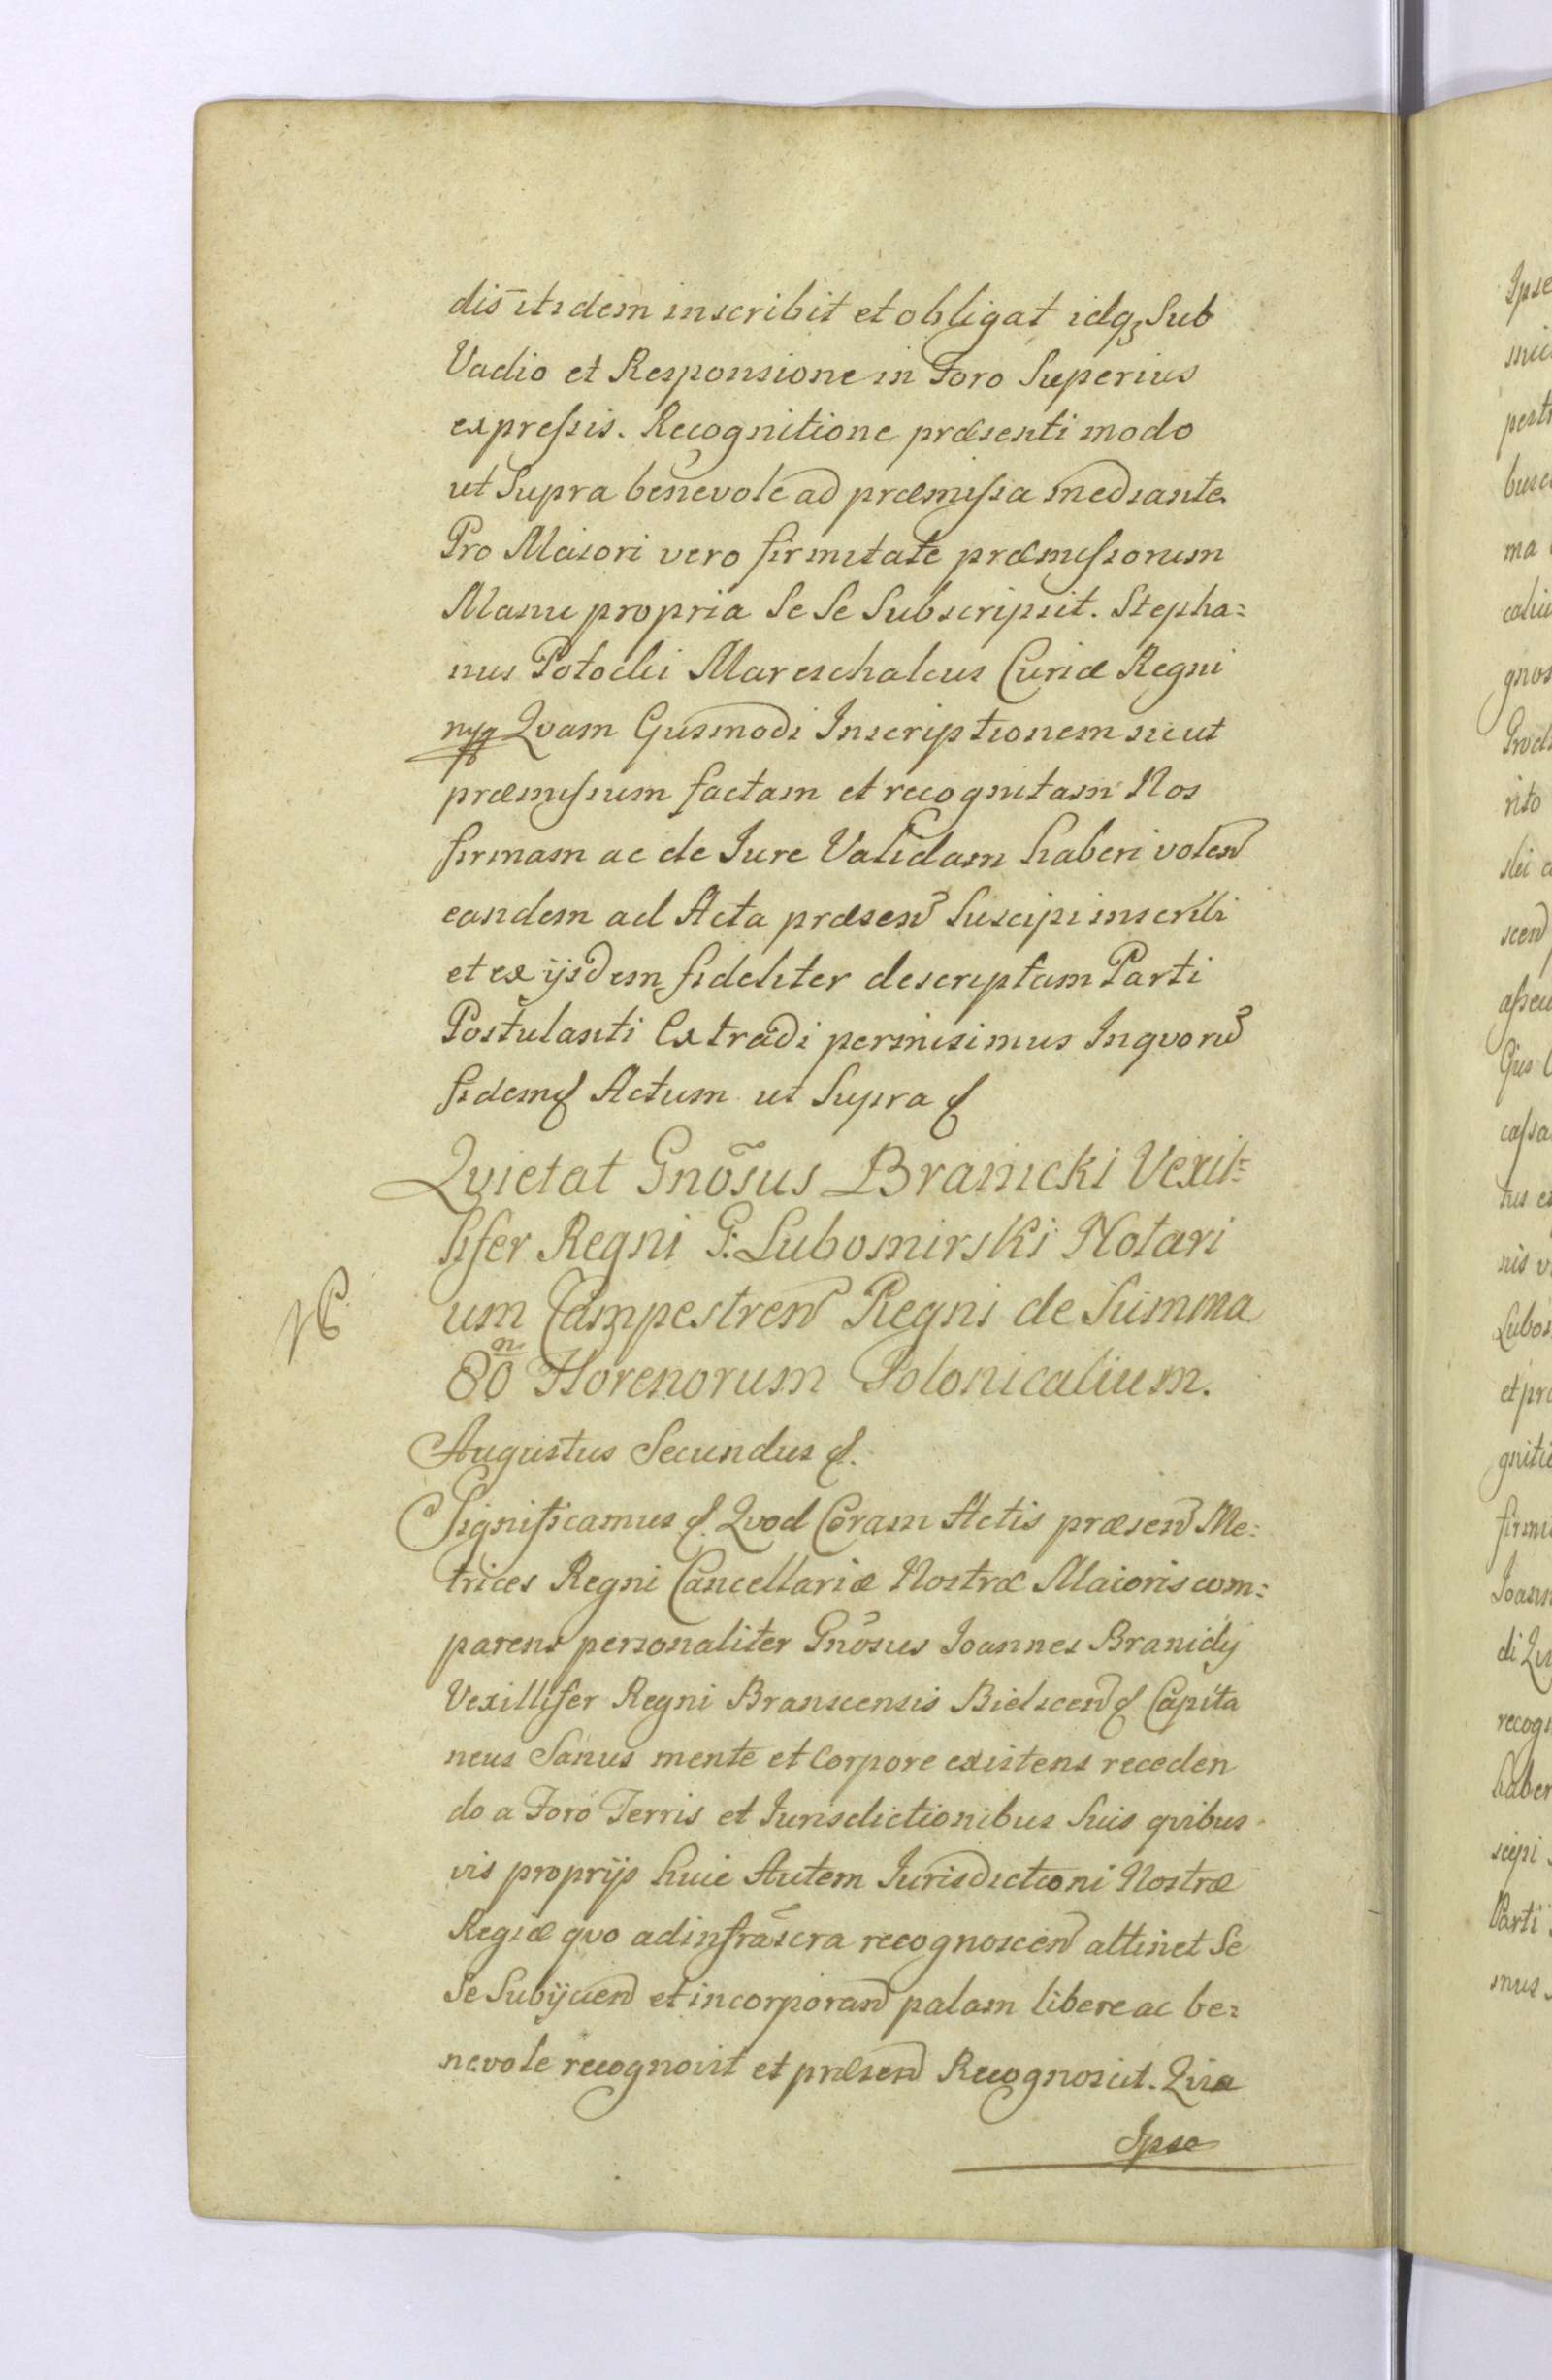 dis itidem inscribit et obligat idq₃ Sub
Vadio et Responsione in Foro Superius
expressis. Recognitione præsenti modo
ut Supra benevole ad præmissa mediante
Pro Maiori vero firmitate præmissorum
Manu propria Se Se Subscripsit. Stepha=
nus Potocki Mareschalcus Curiæ Regni
Qvam Ejusmodi Inscriptionem sicut
præmissum factam et recognitam Nos
firmam ac de Iure Validam haberi volen
eandem ad Acta præsen Suscipi inscribi
et ex ijsdem fideliter descriptam Parti
Postulanti Extradi permisimus Inqvoru
fidem Actum ut Supra
Qvietat Gnõsus Branicki Vexil=
lifer Regni G: Lubomirski Notari
um Campestren Regni de Summa
80 m Florenorum Polonicalium.
Augustus Secundus
Significamus Qvod Coram Actis præsen Me:
trices Regni Cancellariæ Nostræ Maioris com:
parens personaliter Gnõsus Ioannes Branicky
Vexillifer Regni Branscensis Bielscen Capita
neus Sanus mente et Corpore existens receden
do a Foro Terris et Iurisdictionibus Suis qvibus
vis proprijs huic Autem Iurisdictioni Nostræ
Regiæ qvo ad infrãscra recognoscen attinet Se
Se Subijcien et incorporan palam libere ac be=
nevole recognovit et præsen Recognoscit. Qvia
Ipse